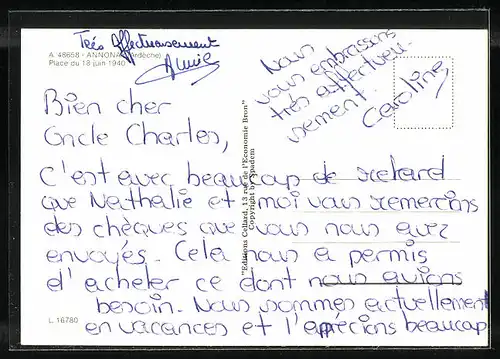 Très Affectueusement
A. 48658 - ANNONAY (Ardèche)
Place du 18 juin 1940
Nous
vous embrassons
très affectueu-
sement.
Caroline
Bien cher
Oncle Charles,
C'est avec beaucoup de retard
que Nathalie et moi vous remercions
des chèques que vous nous avez
envoyés. Cela nous a permis
d'acheter ce dont nous avions
besoin. Nous sommes actuellement
en vacances et l'apprécions beaucoup
"Editions Cellard, 13 rue de l'Economie Bron"
Copyright by Spadem
L 16780